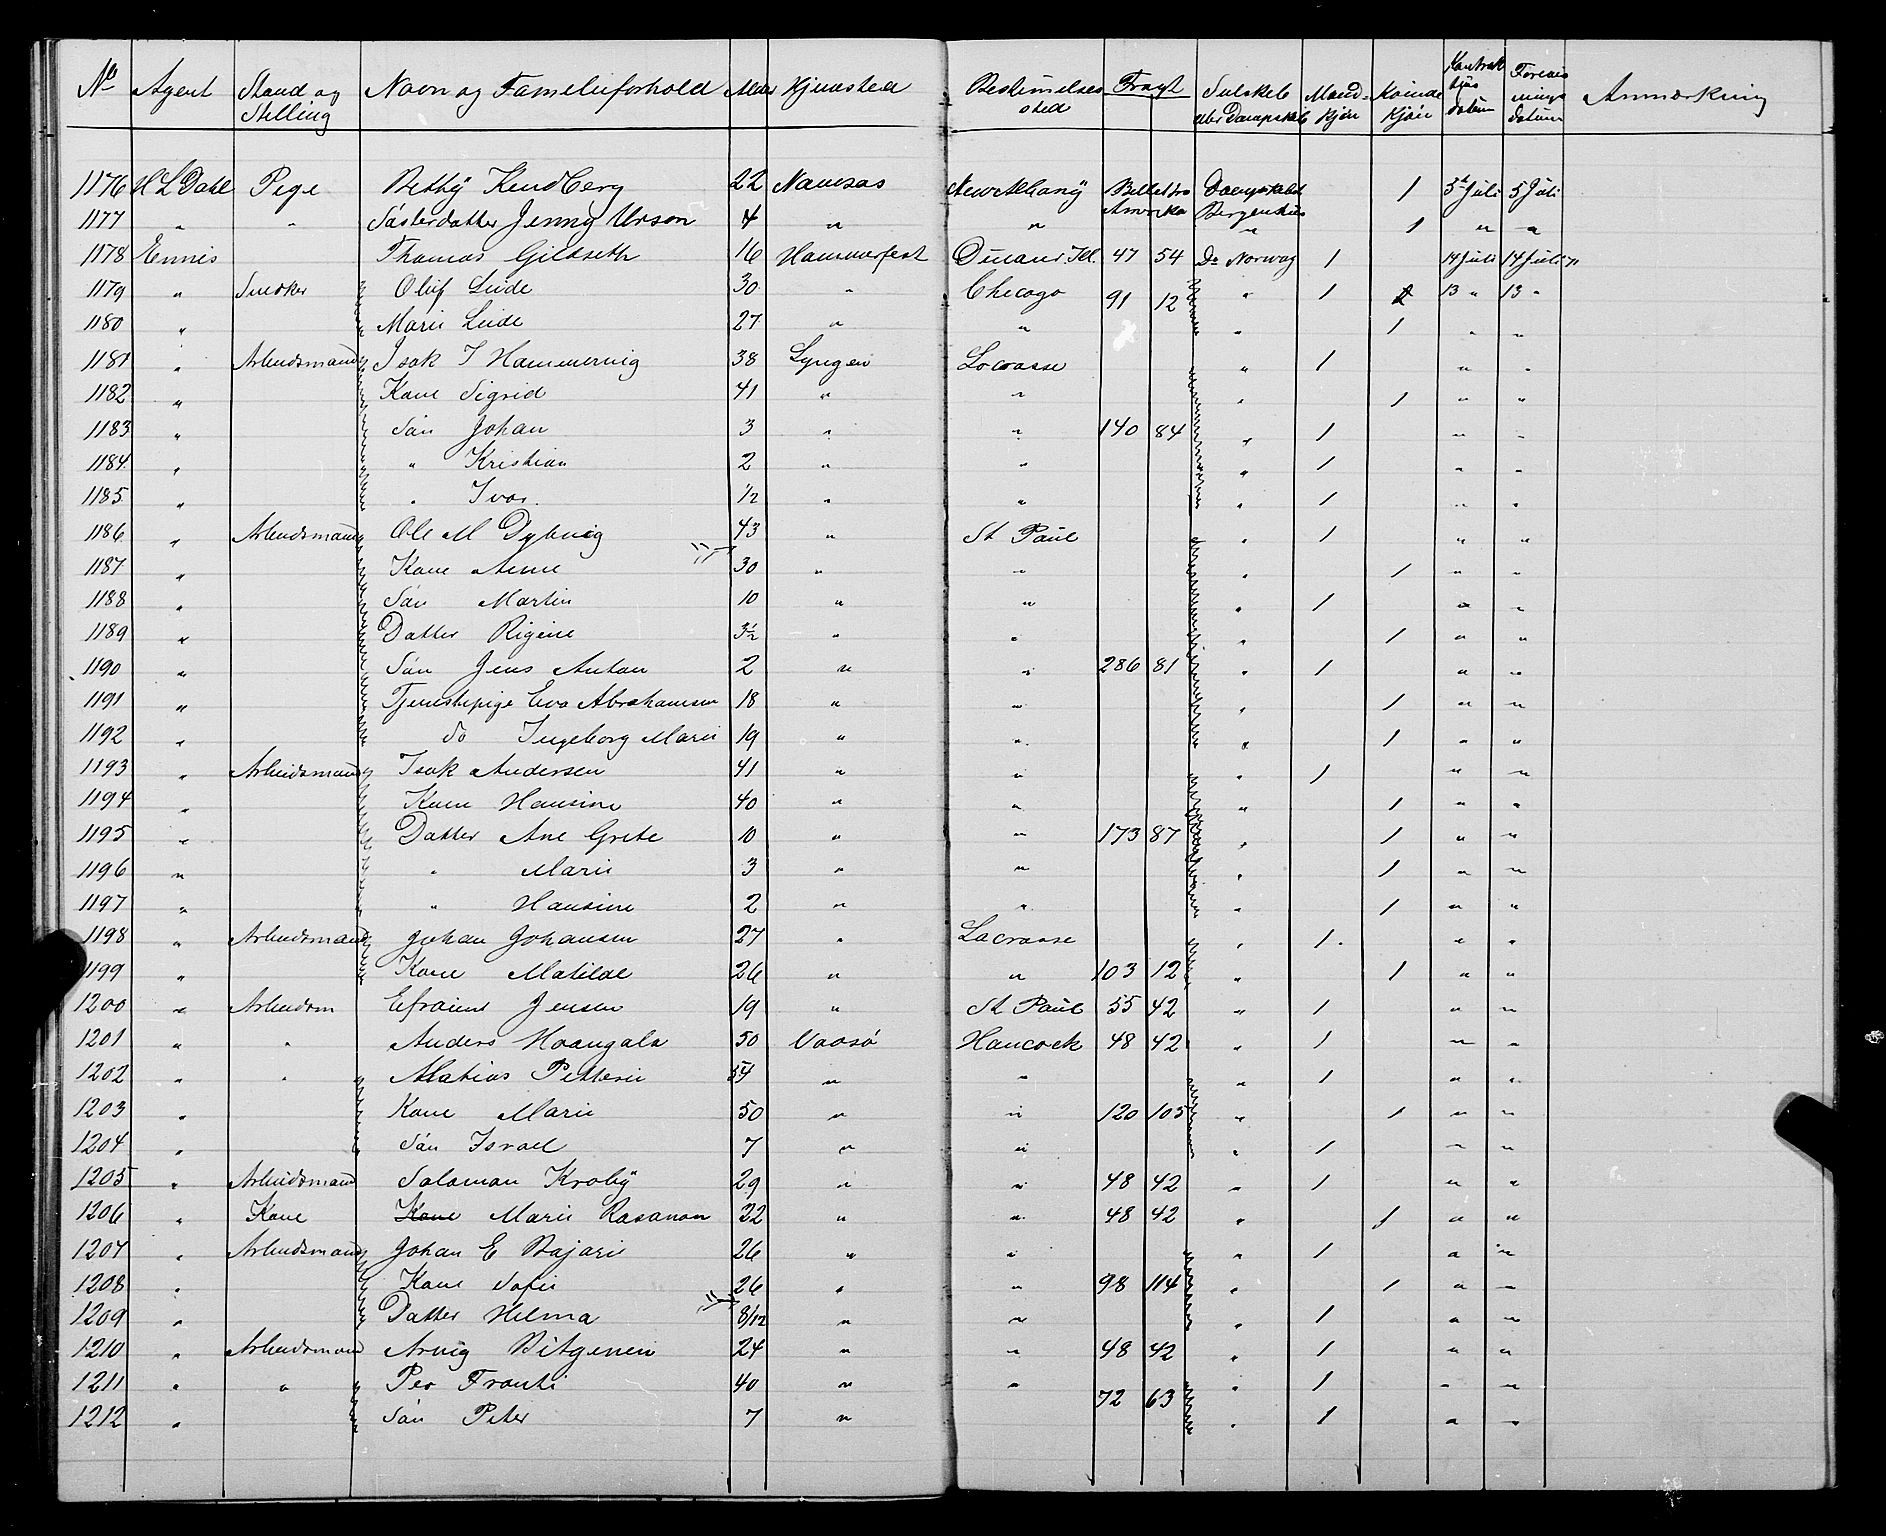 No Agent Stand og Stilling Navn og Familieforhold Alder Hjemsted Bestemelses sted Fragt Selskab eller Dampskib Mand- kjøn Kvinde kjøn Kontrak tens datum Forevis nings datum Anmærkning
1176 H L Dahl Pige Bethÿ Kindberg 22 Namsos New Albanÿ Billet fra Amerika Dampskibet Bergenhus 1 5te Juli 5 Juli
1177 " " Søsterdatter Jenny Urson 4 " " " 1 " "
1178 Ennis Thomas Gildseth 16 Hammerfest Ill. 47 54 Ds Norway 1 14 Juli 14 Juli
1179 " Snedker Oluf Leide 30 " Chicago 91 12 " 1 13 " 13 "
1180 " Marie Leide 27 " " " 1 " "
1181 " Arbeidsmand Isak I Hammervig 38 Lyngen Lacrosse " 1 " "
1182 " Kone Sigrid 41 " " " 1 " "
1183 " Søn Johan 3 " " 140 84 " 1 " "
1184 " " Kristian 2 " " " 1 " "
1185 " " Ivar 1/2 " " " 1 " "
1186 " Arbeidsmand Ole M Dybvig 43 " St Paul " 1 " "
1187 " Kone Anne 30 " " " 1 " "
1188 " Søn Martin 10 " " " 1 " "
1189 " Datter Rigine 3½ " " " 1 " "
1190 " Søn Jens Anton 2 " " 286 81 " 1 " "
1191 " Tjenestepige Eva Abrahamsen 18 " " " 1 " "
1192 " do Ingeborg Marie 19 " " " 1 " "
1193 " Arbeidsmand Isak Andersen 41 " " " 1 " "
1194 " Kone Hansine 40 " " " 1 " "
1195 " Datter Ane Grete 10 " " 173 87 " 1 " "
1196 " " Marie 3 " " " 1 " "
1197 " " Hansine 2 " " " 1 " "
1198 " Arbeidsmand Johan Johansen 27 " Lacrosse " 1 " "
1199 " Kone Matilde 26 " " 103 12 " 1 " "
1200 " Arbeidsm Efraim Jensen 19 " St Paul 55 42 " 1 " "
1201 " " Anders Hoangala 50 Vadsø Hancock 48 42 " 1 " "
1202 " " Matias Petterie 54 " " " 1 " "
1203 " Kone Marie 50 " " 120 105 " 1 " "
1204 " Søn Israel 7 " " " 1 " "
1205 " Arbeidsmand Saloman Krobÿ 29 " " 48 42 " 1 " "
1206 " Kone Kone Marie Rasanon 22 " " 48 42 " 1 " "
1207 " Arbeidsmand Johan E Bajari 26 " " " 1 " "
1208 " Kone Sofie 26 " " 98 114 " 1 " "
1209 " Datter Hilma 8/12 " " " 1 " "
1210 " Arbeidsmand Arvig Bitgenen 24 " " 48 42 " 1 " "
1211 " " Per Franti 40 " " 72 63 " 1 " "
1212 " Søn Peter 7 " " 1 " "